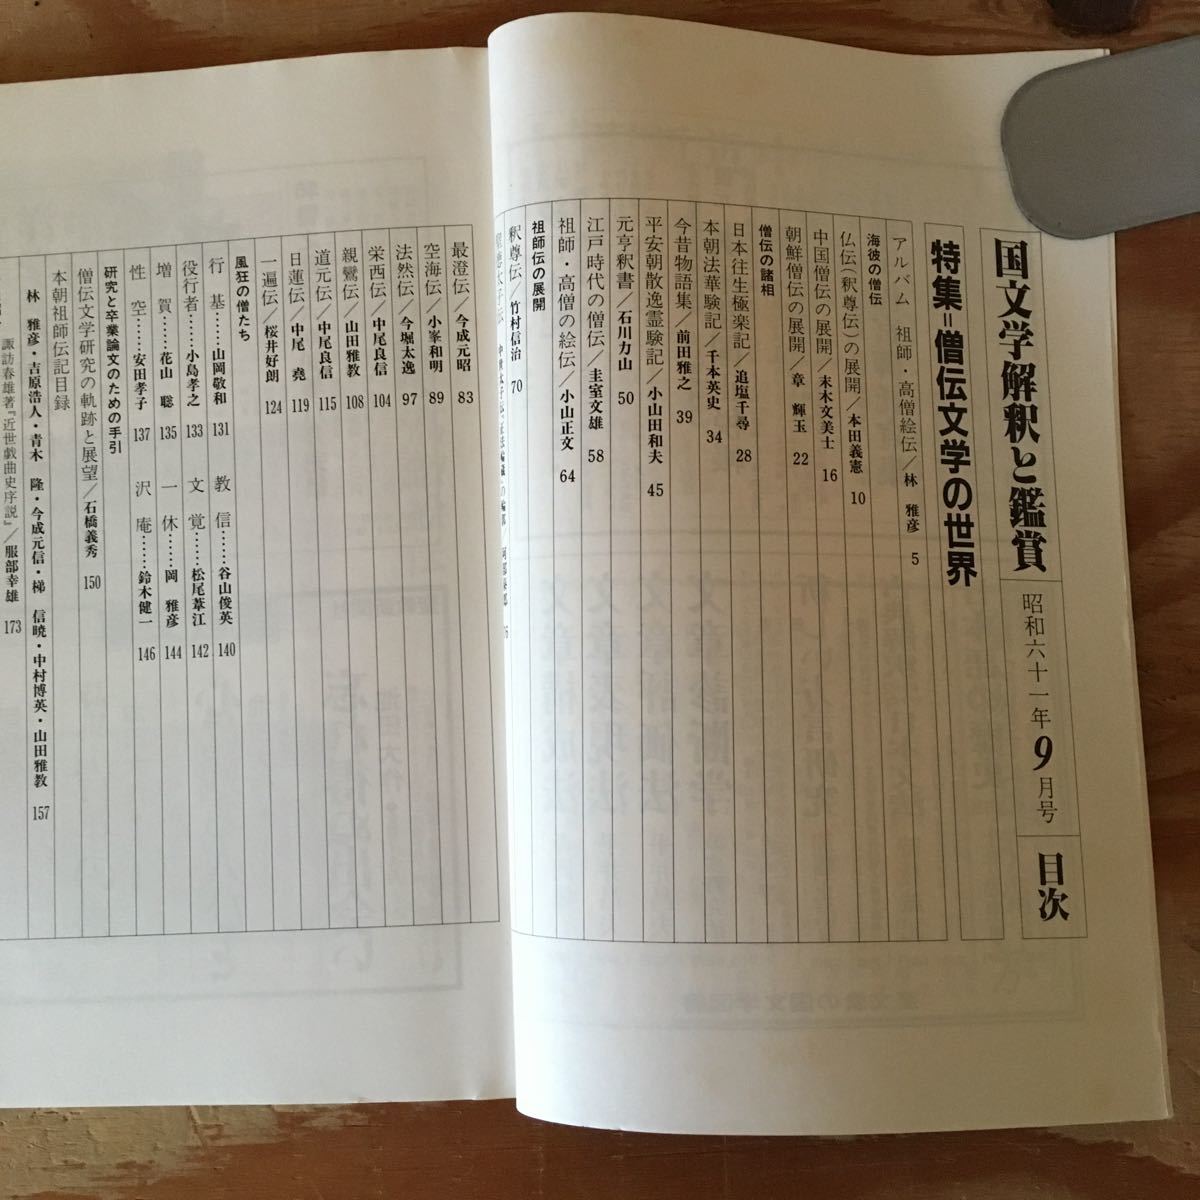 国文学解釈と鑑賞 昭和六十一年9月号 目次
特集=僧伝文学の世界
アルバム 祖師・高僧絵伝/林 雅彦 5
海彼の僧伝
仏伝(釈尊伝)の展開/本田義憲 10
中国僧伝の展開/末木文美士 16
朝鮮僧伝の展開/章 輝玉 22
僧伝の諸相
日本往生極楽記/追塩千尋 28
本朝法華験記/千本英史 34
今昔物語集/前田雅之 39
平安朝散逸霊験記/小山田和夫 45
元亨釈書/石川力山 50
江戸時代の僧伝/圭室文雄 58
祖師・高僧の絵伝/小山正文 64
祖師伝の展開
釈尊伝/竹村信治 70
聖徳太子伝
最澄伝/今成元昭 83
空海伝/小峯和明 89
法然伝/今堀太逸 97
栄西伝/中尾良信 104
親鸞伝/山田雅教 108
道元伝/中尾良信 115
日蓮伝/中尾 堯 119
一遍伝/桜井好朗 124
風狂の僧たち
行基……山岡敬和 131 教信……谷山俊英 140
役行者……小島孝之 133 文覚……松尾葦江 142
増賀……花山 聡 135 一休……岡 雅彦 144
性空……安田孝子 137 沢庵……鈴木健一 146
研究と卒業論文のための手引
僧伝文学研究の軌跡と展望/石橋義秀 150
本朝祖師伝記目録
林 雅彦・吉原浩人・青木 隆・今成元信・梯 信暁・中村博英・山田雅教 157
諏訪春雄著『近世戯曲史序説』/服部幸雄 173